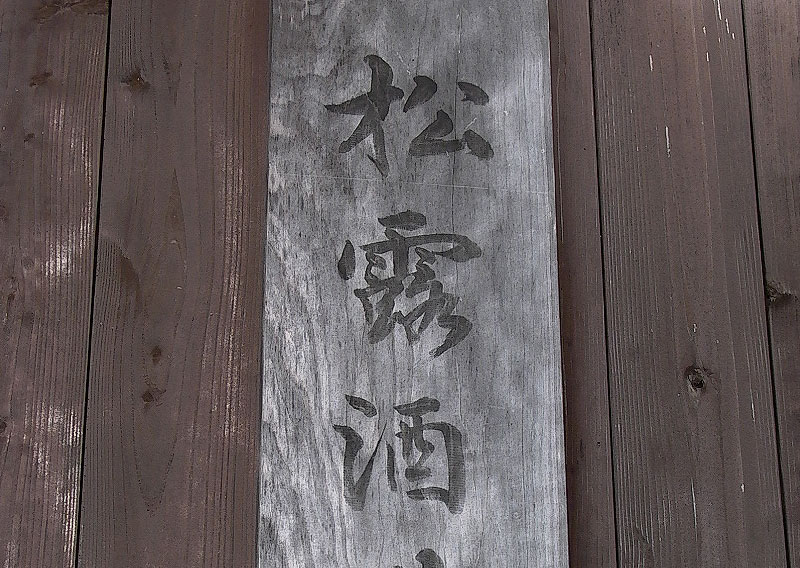 松露酒